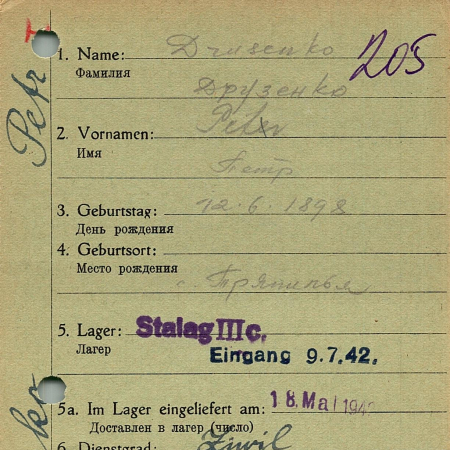 1. Name: Drusenko 205
Фамилия
Друзенко
2. Vornamen: Peter
Имя
Петр
3. Geburtstag: 12.6.1898
День рождения
4. Geburtsort:
Место рождения
с.
5. Lager: Stalag III c.
Лагер
Eingang 9.7.42.
5a. Im Lager eingeliefert am: 18. Mai 194
Доставлен в лагер (число)
6. Dienstgrad: Zivil
Petr
ko